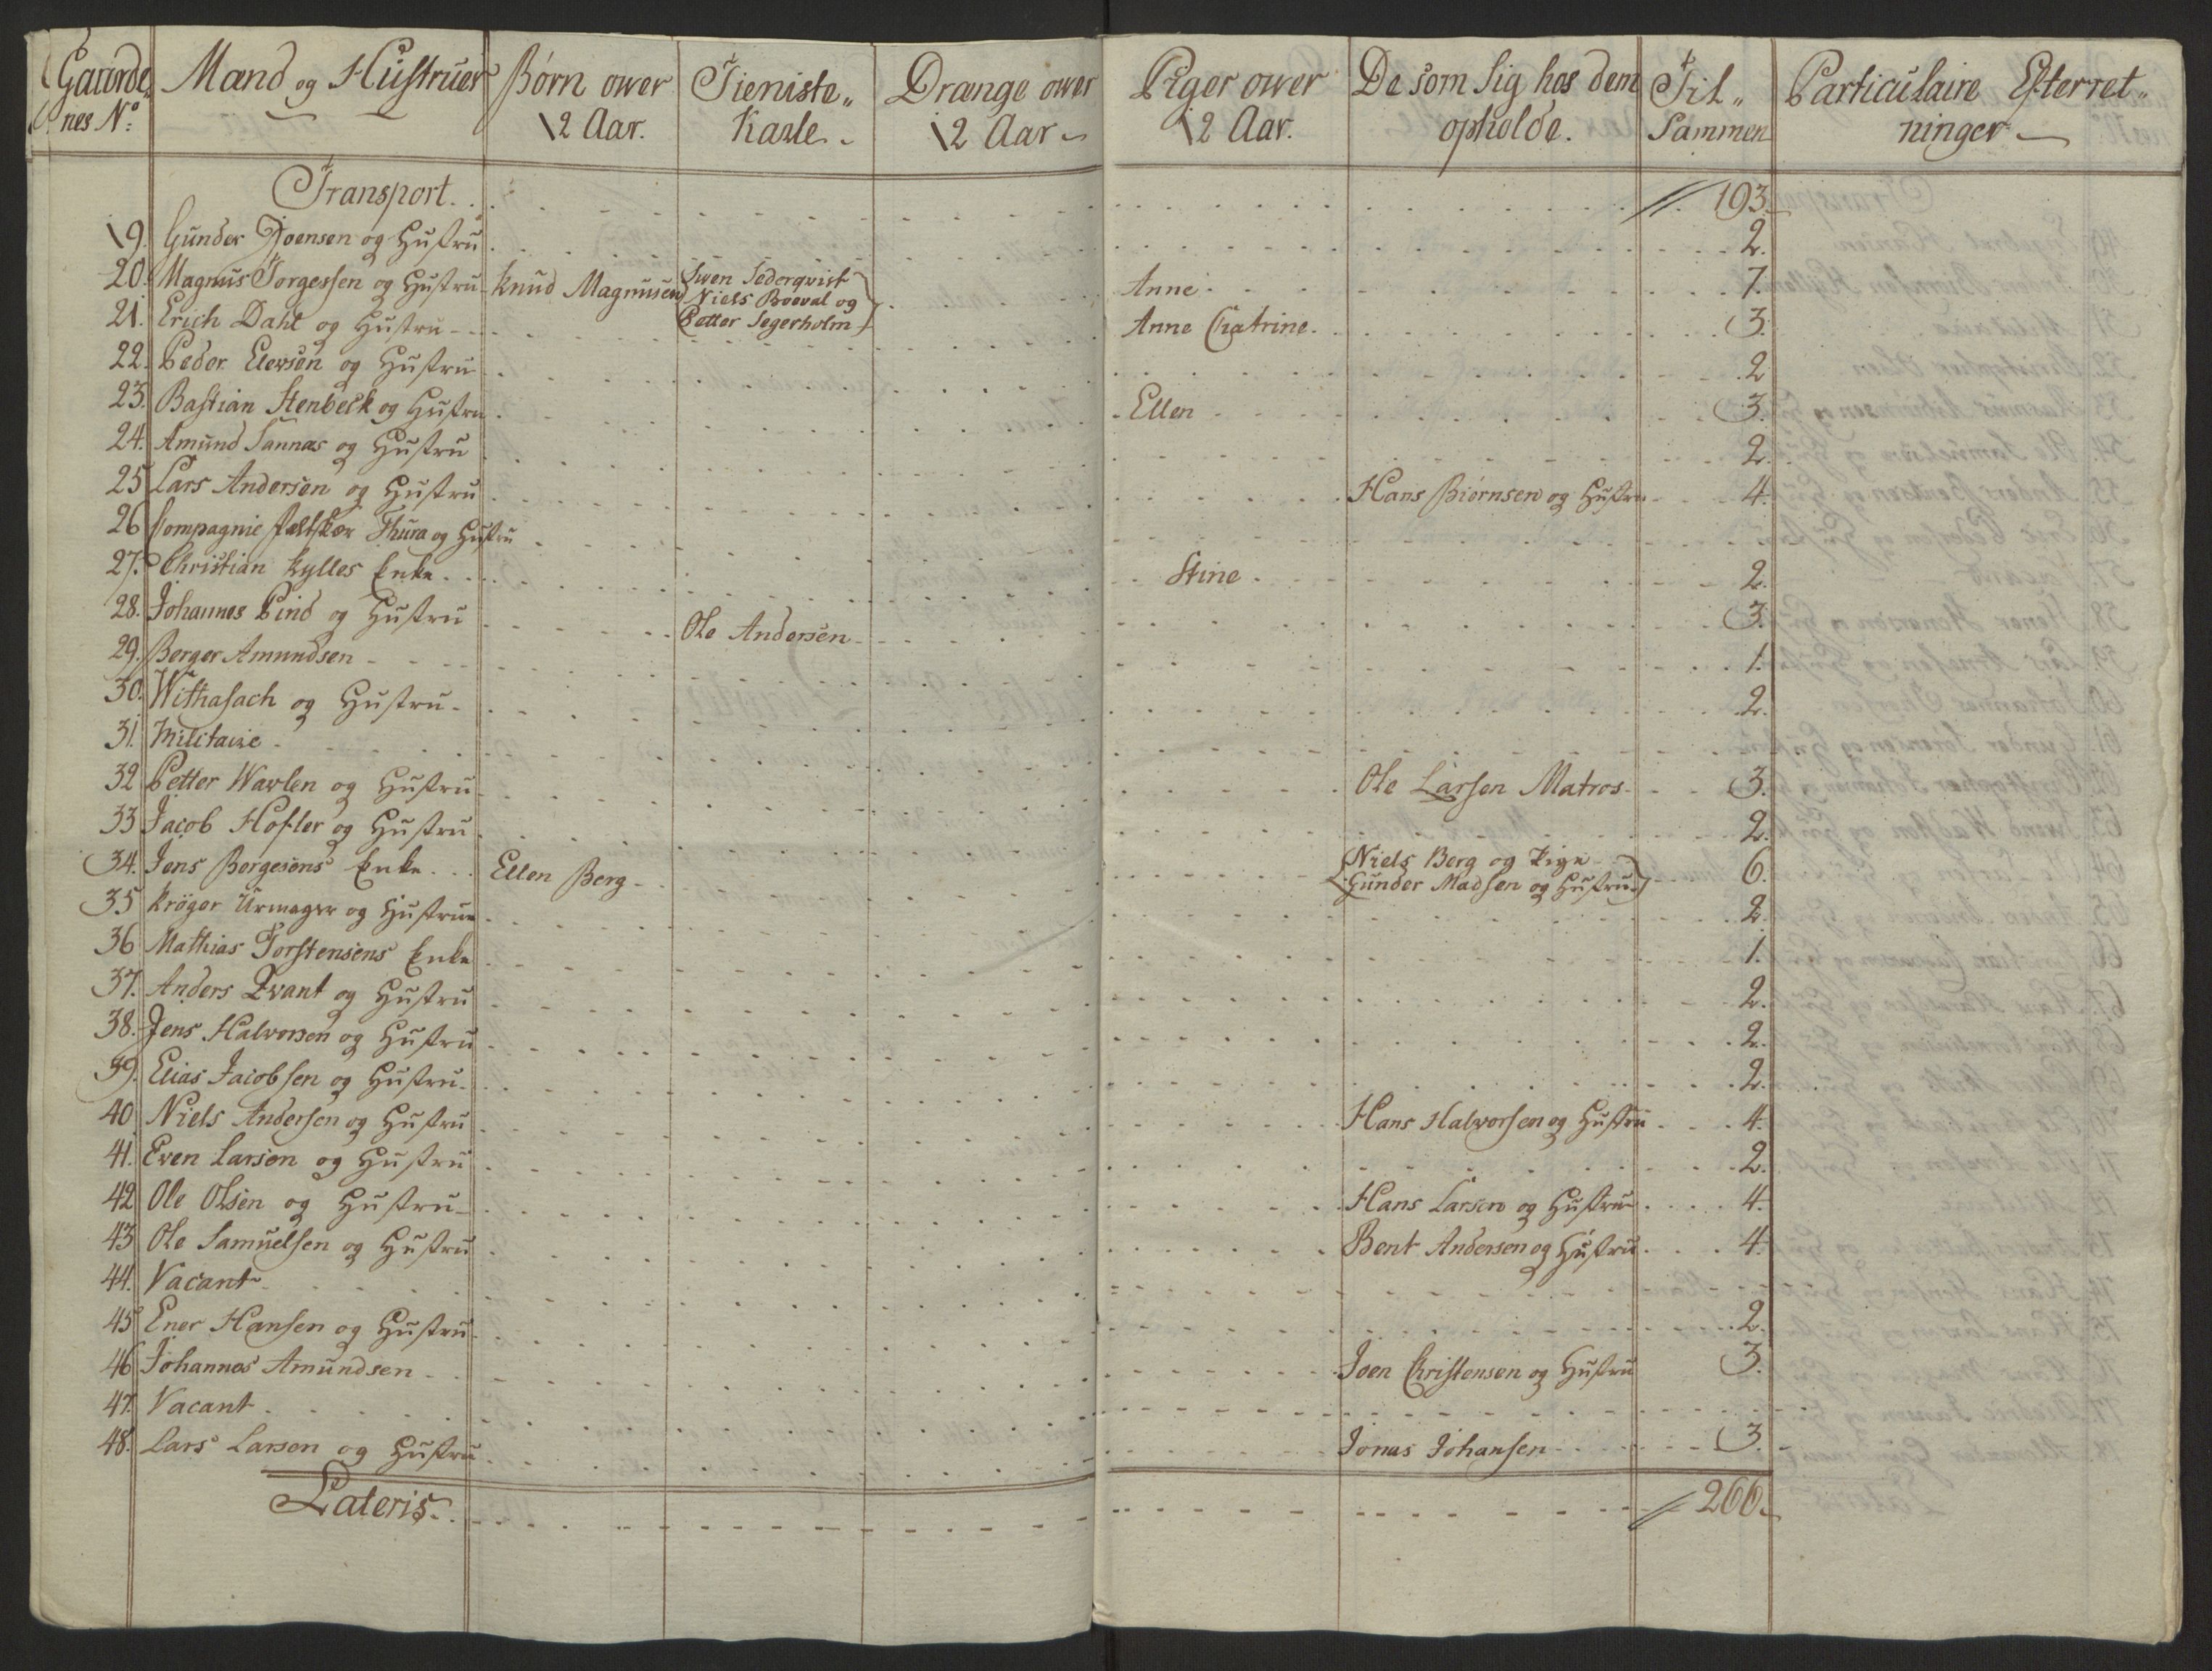 Gaarde„ Mænd og Hustruer Børn ower Tieniste„ Drænge ower Piger ower De som Sig hos dem Til„ Particulaire Efterret„
nes No 12 Aar. Karle 12 Aar 12 Aar. opholde. Sammen ninger
Transport 193.
19. Gunder Joensen og Hustru 2.
20. Magnus Torgersen og Hustru Knud Magnusen Swen Sederqvist Niels Boeval og Petter Segerholm Anne 7.
21. Erich Dahl og Hustru Anne Chatrine 3.
22. Peder Elersen og Hustru 2
23. Bastian Stenbeck og Hustru Ellen 3.
24. Amund Sannæs og Hustru 2.
25 Lars Andersen og Hustru Hans Biørnsen og Hustru 4.
26 Compagnie Fæltskær Thura og Hustru
27. Christian Kylles Enke Stine 2.
28. Johannes Pind og Hustru Ole Andersen 3.
29. Berger Amundsen 1.
30. Withasach og Hustru 2.
31. Militaire
32 Petter Warlen og Hustru Ole Larsen Matros 3.
33 Jacob Hofler og Hustru 2.
34. Jens Borgesens Enke Ellen Berg Niels Berg og Pige Gunder Madsen og Hustru 6.
35 Krøger Urmager og Hustrue 2.
36 Mathias Torstensens Enke 1.
37. Anders Qvant og Hustru 2.
38. Jens Halvorsen og Hustru 2.
39. Elias Jacobsen og Hustru 2.
40 Niels Andersen og Hustru Hans Halvorsen og Hustru 4.
41. Even Larsen og Hustru 2.
42 Ole Olsen og Hustru Hans Larsen og Hustru 4.
43 Ole Samuelsen og Hustru Bent Andersen og Hustru 4.
44. Vacant
45 Ener Hansen og Hustru 2.
46 Johannes Amundsen Joen Christensen og Hustru 3.
47. Vacant
48. Lars Larsen og Hustru Jonas Johansen 3.
Lateris 266.